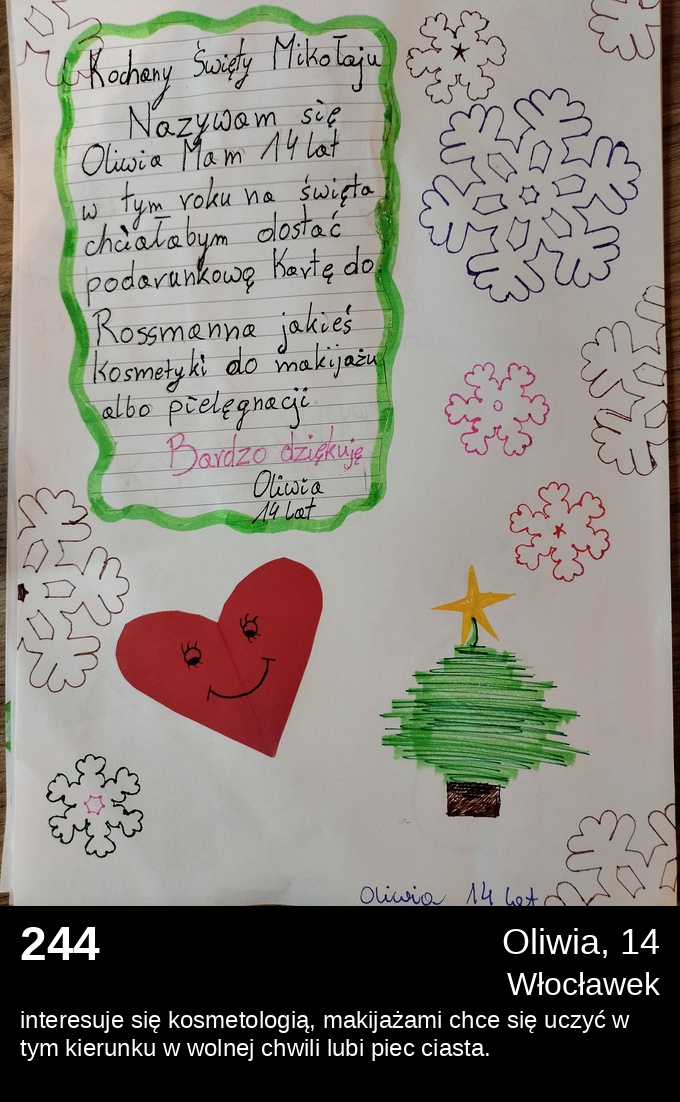 Kochany Święty Mikołaju
Nazywam się
Oliwia Mam 14 lat
w tym roku na święta
chciałabym dostać
podarunkową Kartę do
Rossmanna jakieś
kosmetyki do makijażu
albo pielęgnacji
Bardzo dziękuję
Oliwia
14 lat
Oliwia 14 lat
244
Oliwia, 14
Włocławek
interesuje się kosmetologią, makijażami chce się uczyć w
tym kierunku w wolnej chwili lubi piec ciasta.